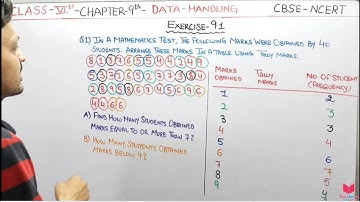 CLASS-VIth-CHAPTER-9th- DATA-HANDLING CBSE-NCERT
EXERCISE-9.1
Q1) IN A MATHEMATICS TEST, THE FOLLOWING MARKS WERE OBTAINED BY 40
STUDENTS. ARRANGE THESE MARKS IN A TABLE USING TALLY MARKS.
8 1 3 7 6 5 5 4 4 2 4 9
5 3 7 1 6 5 2 7 7 3 8 4
2 8 9 5 8 6 7 4 5 6 9 6
4 4 6 6
A) FIND HOW MANY STUDENTS OBTAINED
MARKS EQUAL TO OR MORE THAN 7?
B) HOW MANY STUDENTS OBTAINED
MARKS BELOW 4?
MARKS OBTAINED TALLY MARKS NO OF STUDENT (FREQUENCY)
1 2
2 3
3 3
4
5
6
7
8
9